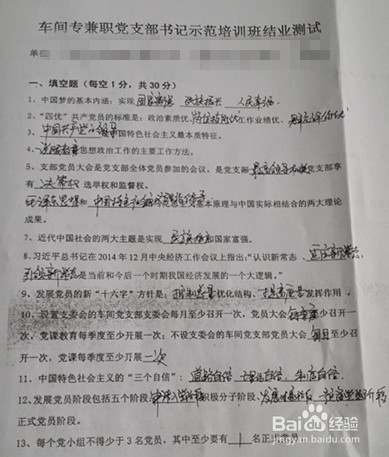 车间专兼职党支部书记示范培训班结业测试
单位
一、填空题（每空1分，共30分）
1、中国梦的基本内涵：实现国家富强 民族振兴 人民幸福
2、“四优”共产党员的标准是：政治素质优、岗位技能优、工作业绩优、群众评价优
3、中国共产党的领导 国特色社会主义最本质特征。
4、 思想政治工作的主要工作方法。
5、支部党员大会是党支部全体党员参加的会议，是党支部最高领导机关 党支部享
有 表决权 选举权和监督权。
毛泽东思想和中国特色社会主义理论体系 基本原理与中国实际相结合的两大理论
成果。
7、近代中国社会的两大主题是实现 民族独立 和国家富强。
8、习近平总书记在2014年12月中央经济工作会议上指出：“认识新常态，适应新常态，
引领新常态 是当前和今后一个时期我国经济发展的一个大逻辑。”
9、发展党员的新“十六字”方针是：控制总量 优化结构、提高质量 发挥作用。
10、设置支委会的车间党支部支委会每月至少召开一次，党员大会 每季度 至少召
开一次，党课教育每季度至少开展一次；不设支委会的车间党支部党员大会 每月 至少召
开一次，党课每季度至少开展 一次
11、中国特色社会主义的“三个自信”：道路自信、理论自信、制度自信。
12、发展党员阶段包括五个阶段 申请入党 积极分子阶段、发展对象阶段、预备党员阶段
正式党员阶段。
13、每个党小组不得少于3名党员，其中至少要有 1 名正式
Baidu 百度经验